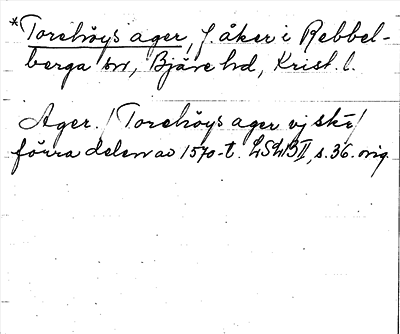 *Torehöys ager, f. åker i Rebbel-
berga sn, Bjäre hd, Krist. l.
Ager. / Torehöys ager vj skr /
förra delen av 1570-t. LSLB II, s. 36. orig.